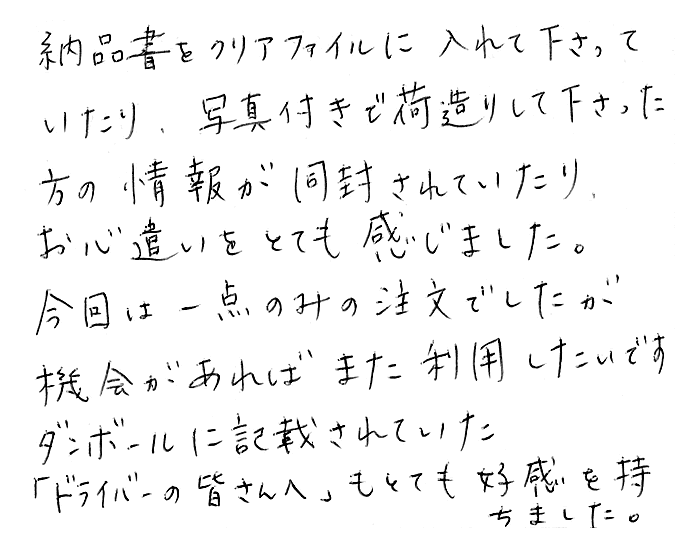 納品書をクリアファイルに入れて下さって
いたり、写真付きで荷造りして下さった
方の情報が同封されていたり、
お心遣いをとても感じました。
今回は一点のみの注文でしたが
機会があればまた利用したいです
ダンボールに記載されていた
「ドライバーの皆さんへ」もとても好感を持
ちました。